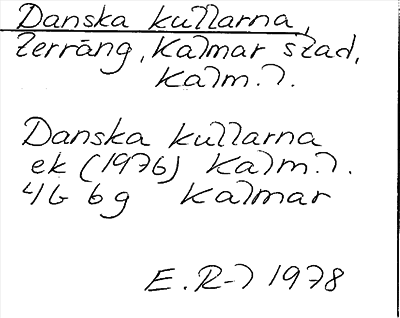 Danska kullarna,
terräng, Kalmar stad,
Kalm.l.
Danska kullarna
ek (1976) Kalm.l.
4G 6g Kalmar
E.R-l 1978